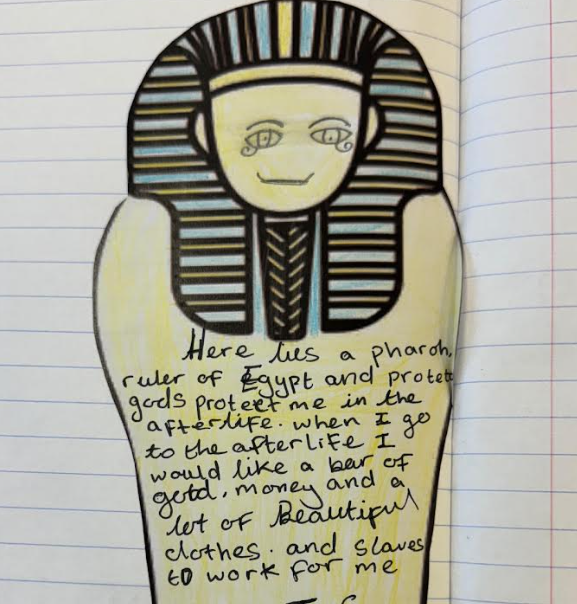 Here lies a pharoh,
ruler of Egypt and protect
gods protect me in the
afterlife. when I go
to the afterlife I
would like a bar of
gold, money and a
lot of Beautiful
clothes. and slaves
to work for me